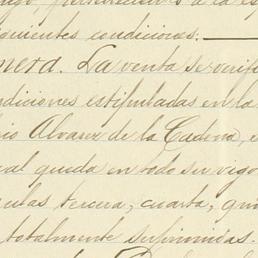 pertenecer a la es
iguientes condiciones:
mera. La venta se verifi
ndiciones estipuladas en la
io Alvarez de la Cadena, e
al queda en todo su vigo
ulas tercera, cuarta, qui
totalmente suprimidas.